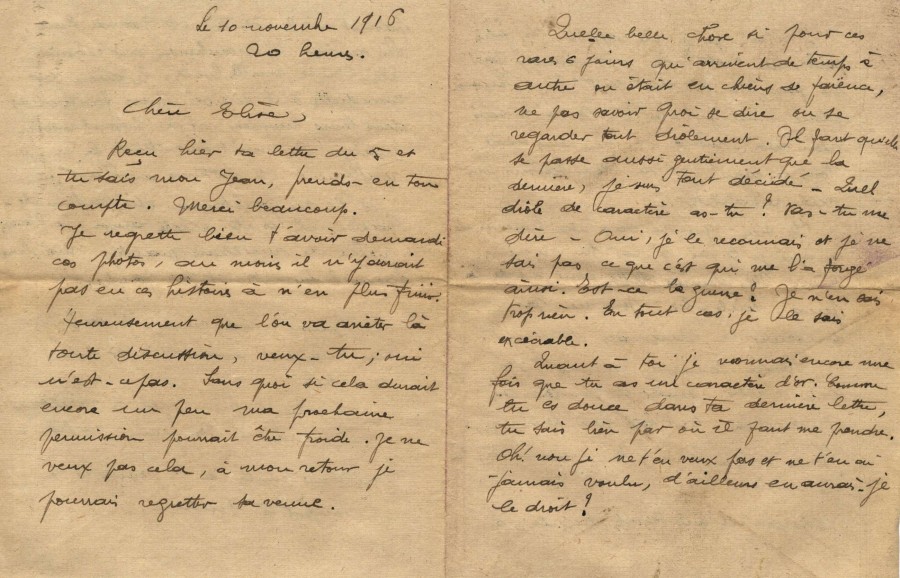 Le 10 novembre 1916
20 heures.
Chère Elise,
Reçu hier ta lettre du 5 et
tu sais mon Jean, prends-en ton
compte. Merci beaucoup.
Je regrette bien t'avoir demandé
ces photos, au moins il n'y aurait
pas eu ces histoires à n'en plus finir.
Heureusement que l'on va arrêter là
toute discussion, veux-tu, oui
n'est-ce pas. Sans quoi si cela durait
encore un peu ma prochaine
permission pourrait être froide. Je ne
veux pas cela, à mon retour je
pourrais regretter sa venue.
Quelle belle chose si pour ces
rares 6 jours qui arrivent de temps à
autre on était en chiens de faïence,
ne pas savoir quoi se dire ou se
regarder tout drôlement. Il faut qu'elle
se passe aussi gentiment que la
dernière, je suis tout décidé - Quel
drôle de caractère as-tu? Vas-tu me
dire - Oui, je le reconnais et je ne
sais pas ce que c'est qui me l'a forgé
ainsi. Est-ce la guerre? Je n'en sais
trop rien. En tout cas, je le sais
exécrable.
Quant à toi je reconnais encore une
fois que tu as un caractère d'or. Comme
tu es douce dans ta dernière lettre,
tu sais bien par où il faut me prendre.
Oh! non je ne t'en veux pas et ne t'en ai
jamais voulu, d'ailleurs en aurais-je
le droit?